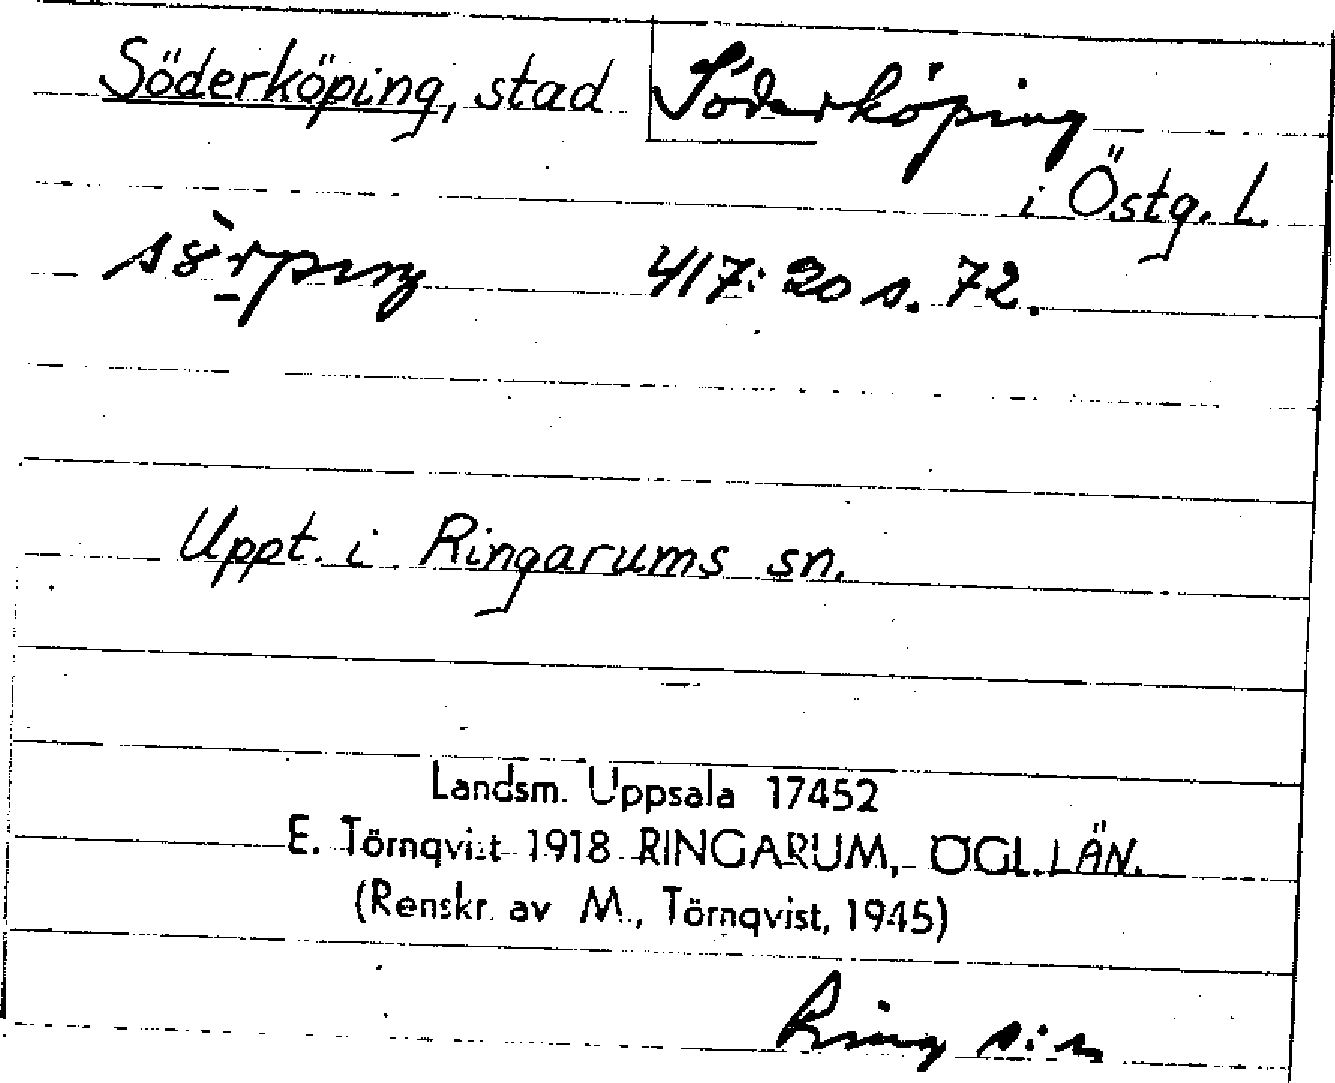 Söderköping, stad Söderköping
i Östg. L.
417: 20 s. 72.
Uppt. i Ringarums sn.
Landsm. Uppsala 17452
E. Törnqvist 1918 RINGARUM, ÖGL. LÄN.
(Renskr. av M., Törnqvist, 1945)
Ring